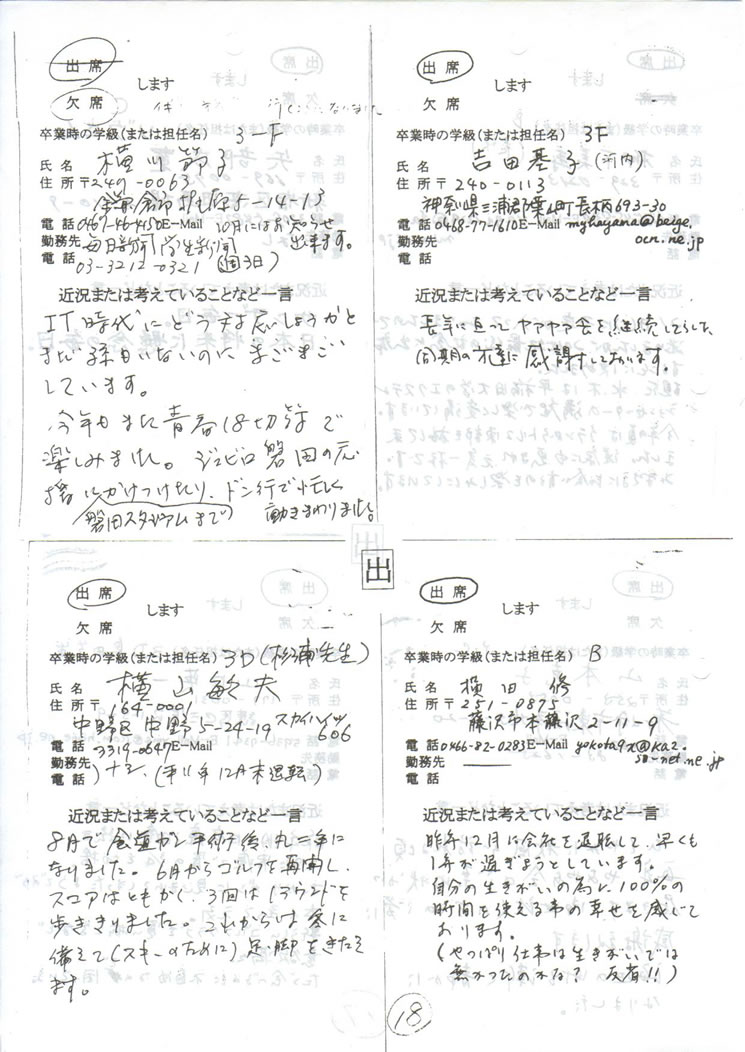 出席
します
欠席
卒業時の学級(または担任名) 3-F
氏名 横川節子
住所〒249-0063
5-14-13
電話0467-46-4150E-Mail 10月にはお知らせ
勤務先 毎日新聞「学生新聞」 出来ます。
電話 03-3212-0321 (週3日)
近況または考えていることなど一言
IT時代にどう対応しようかと
まだ孫もいないのにまごまご
しています。
今年もまた青春18切符で
楽しみました。ジュビロ磐田の応
援にかけつけたり、ドン行で忙しく
磐田スタジアムまで 動きまわりました。
出席
します
欠席
卒業時の学級(または担任名) 3F
氏名 吉田基子(河内)
住所〒240-0113
神奈川県三浦郡葉山町長柄693-30
電話0468-77-1610E-Mail myhayama@beige.
勤務先 ocn.ne.jp
電話
近況または考えていることなど一言
長年に亘ってヤアヤア会を継続して下さった
同期の友達に感謝しております。
出
出席
します
欠席
卒業時の学級(または担任名) 3D(杉浦先生)
氏名 横山敏夫
住所〒164-0001
中野区中野5-24-19 スカイハイツ606
電話 3319-0647E-Mail
勤務先 ナシ (平11年12月末退転)
電話
近況または考えていることなど一言
8月で食道ガン手術後、丸二年に
なりました。6月からゴルフを再開し、
スコアはともかく、3回は1ラウンドを
歩ききりました。これからは冬に
備えて(スキーのために)足・脚をきたえ
ます。
出席
します
欠席
卒業時の学級(または担任名) B
氏名 横田 修
住所〒251-0875
藤沢市本藤沢2-11-9
電話0466-82-0283E-Mail yokota9x@ka2.
勤務先 so-net.ne.jp
電話
近況または考えていることなど一言
昨年12月に会社を退転して、早くも
1年が過ぎようとしています。
自分の生きがいの為に、100%の
時間を使える事の幸せを感じて
おります。
(やっぱり仕事は生きがいでは
無かったのかな? 反省!!)
18